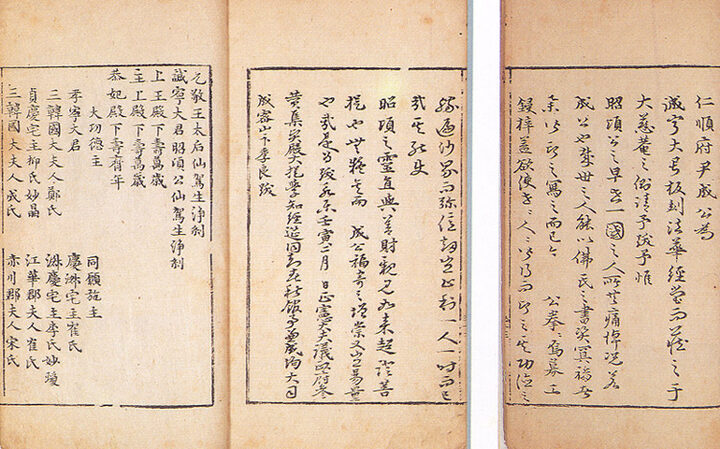 仁順府尹成公為
誠寧大君板刻法華經 而 之于
大慈菴之 請予跋予惟
昭頃公之早世一國之人所共痛悼況若
成公也 世之人能以佛氏之書資冥福者
余以印之寫之而已今 公拳拳焉募工
鋟梓蓋欲使 人人 而印之其功德之
緣遍沙界而弥億劫豈止利 人一時而已
哉
昭頃之靈直與善財親見如来超證菩
提也無疑矣而 成公福壽之增崇又豈易量
也哉是為跋永樂壬寅二月 日正憲大夫議政府參
贊集賢殿大提學知經筵同知春秋館事兼成均大司
成 山卞季良跋
元敬王太后仙駕生淨刹
誠寧大君昭頃公仙駕生淨刹
上王殿下壽萬歲
主上殿下壽萬歲
恭妃殿下壽齊年
大功德主
孝寧大君
三韓國大夫人鄭氏
貞慶宅主柳氏妙晶
三韓國大夫人成氏
同願施主
慶洙宅主崔氏
淑慶宅主李氏妙瓊
江華郡夫人崔氏
赤川郡夫人宋氏